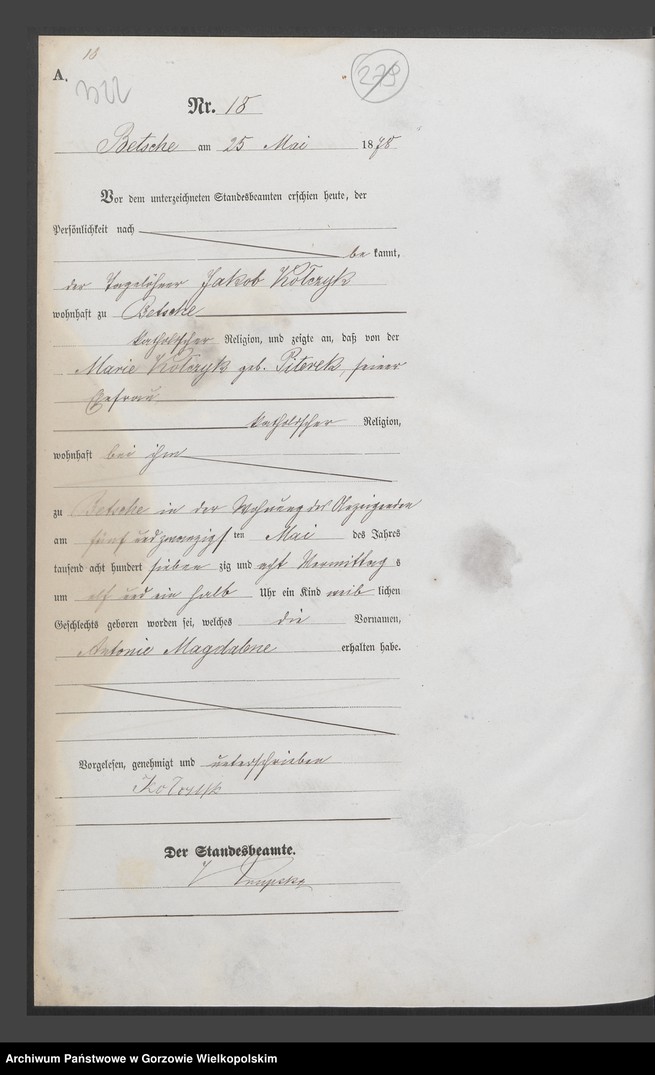 18
A.
273
Nr. 18
Betsche am 25 Mai 1878
Vor dem unterzeichneten Standesbeamten erschien heute, der
Persönlichkeit nach
be kannt,
der Tagelöhner Jakob Kotczyk
wohnhaft zu Betsche
katholischer Religion, und zeigte an, daß von der
Marie Kotczyk geb. Piterek, seiner
Ehefrau
katholischer Religion,
wohnhaft bei ihm
zu Betsche in der Wohnung des Anzeigenden
am fünf und zwanzigsten Mai des Jahres
tausend acht hundert sieben zig und acht Vormittag s
um elf und ein halb Uhr ein Kind weib lichen
Geschlechts geboren worden sei, welches die Vornamen,
Antonie Magdalene erhalten habe.
Vorgelesen, genehmigt und unterschrieben
Kotczyk
Der Standesbeamte.
Archiwum Państwowe w Gorzowie Wielkopolskim